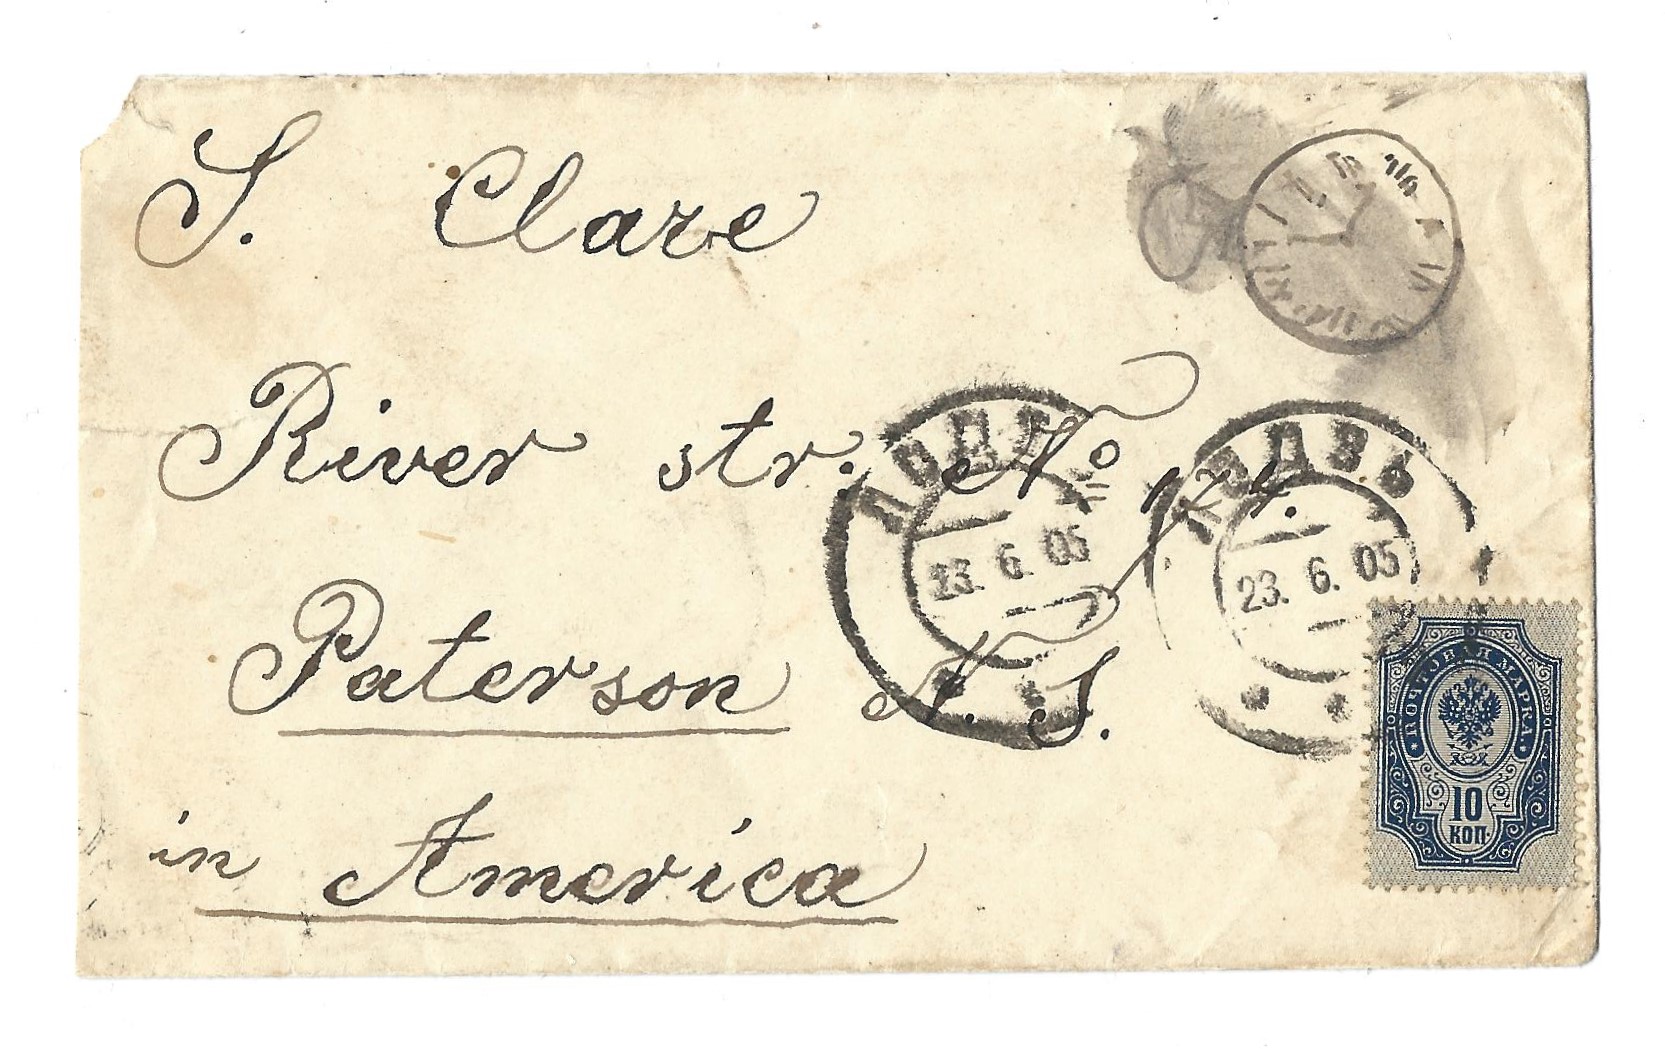 S. Clare
River str. No 124.
Paterson N. S.
in America
ЛОДЗЬ
23. 6. 05
ЛОДЗЬ
23. 6. 05
ПОЧТОВАЯ МАРКА.
10
КОП.